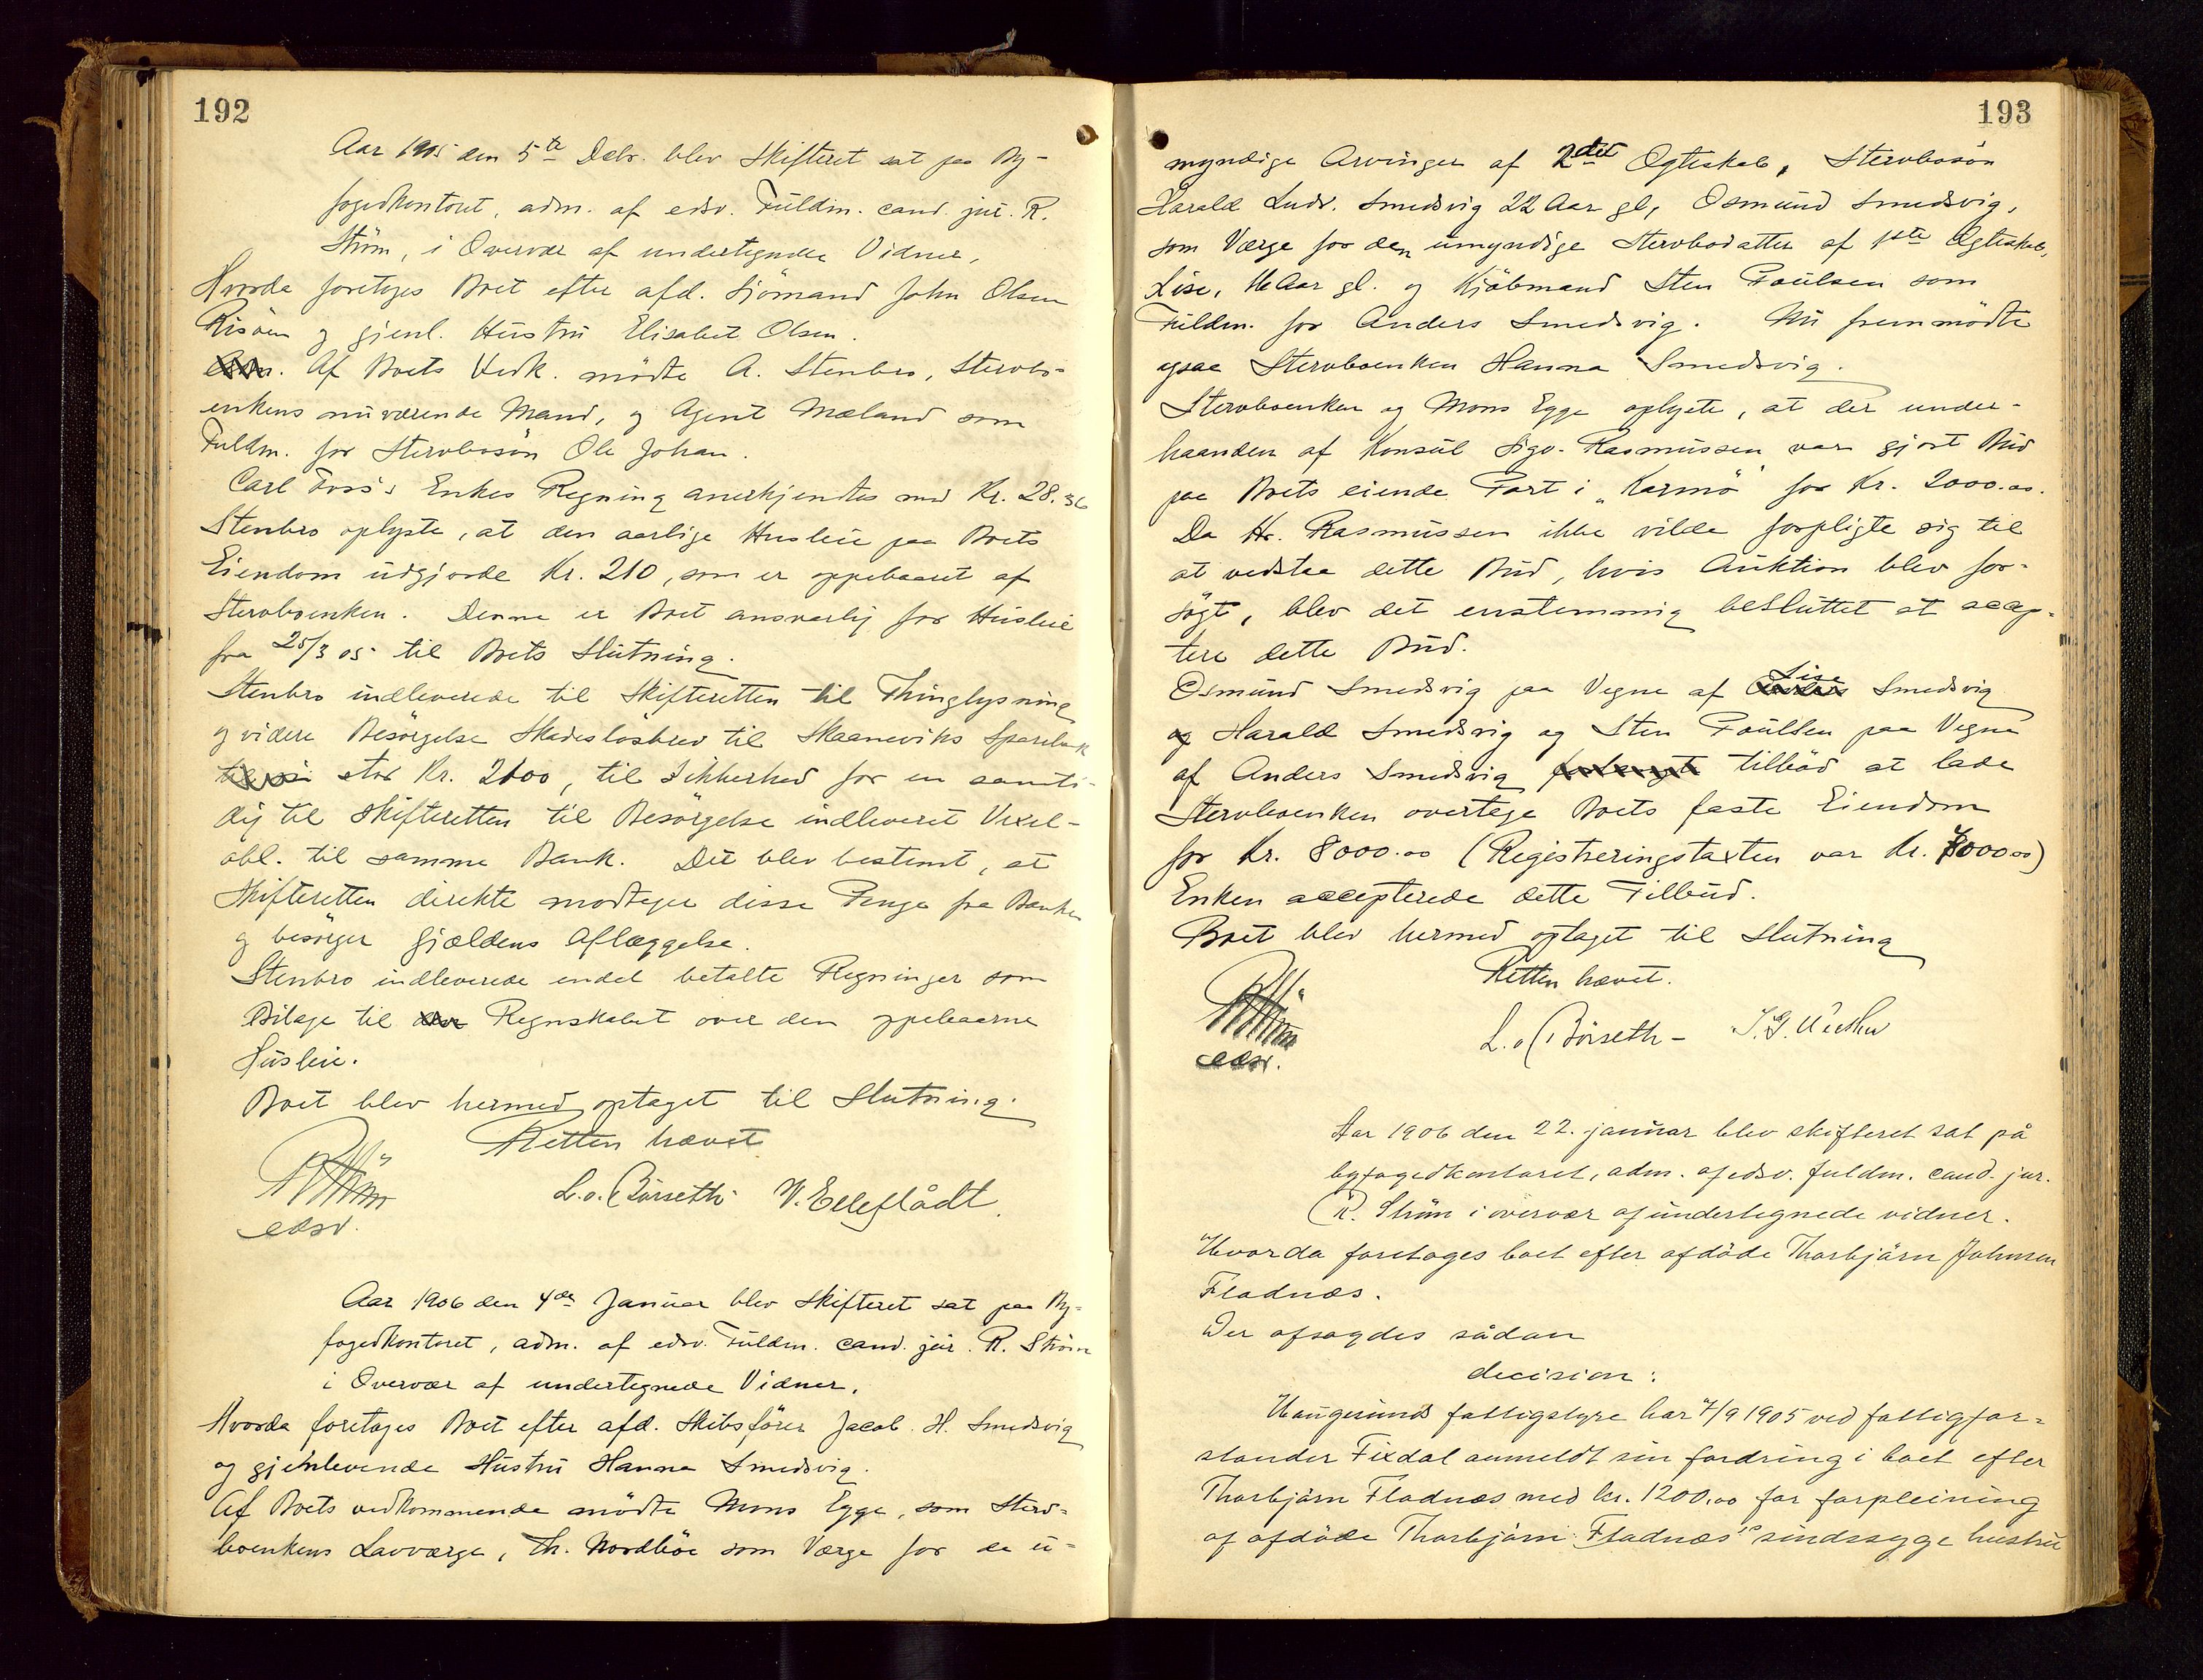 192
Aar 1905 den 5te Debr. blev Skifteret sat paa By-
fogedkontoret, adm. af edsv. Fuldm. cand. jur. R.
Ström, i Overvær af undertegnede Vidner,
Hvorda foretoges Boet efter afd. Sjömand John Olsen
Risöen og gjenl. Hustru Elisabet Olsen.
Af Boets Vedk. mödte A. Stenbro, Stervbo-
enkens nuværende Mand, og Agent Mæland som
Fuldm. for Stervbosön Ole Johan.
Carl Foss's Enkes Regning anerkjendtes med Kr. 28.36
Stenbro oplyste, at den aarlige Husleie paa Boets
Eiendom udgjorde Kr. 210, som er oppebaaret af
Stervboenken. Denne er Boet ansvarlig for Husleie
fra 25/3 05 til Boets Slutning.
Stenbro indleverede til Skifteretten til Thinglysning
og videre Besörgelse Skadeslösbrev til Skaaneviks Sparebank
stor Kr. 2100, til Sikkerhed for en samti-
dig til Skifteretten til Besörgelse indleveret Vexel-
obl. til samme Bank. Det blev bestemt, at
Skifteretten direkte modtager disse Penge fra Banken
og besörger Gjældens Aflæggelse.
Stenbro indleverede endel betalte Regninger som
Bilage til Regnskabet over den oppebaarne
Husleie.
Boet blev hermed optaget til Slutning.
Retten hævet
RStröm
edsv.
L. o. Börseth W. Eeleflådt.
Aar 1906 den 4de Januar blev Skifteret sat paa By-
fogedkontoret, adm. af edsv. Fuldm. cand. jur. R. Ström
i Overvær af undertegnede Vidner.
Hvorda foretoges Boet efter afd. Skibsförer Jacob H. Smedsvig
og gjenlevende Hustru Hanna Smedsvig.
Af Boets vedkommende mödte Mons Egge, som Sterv-
boenkens Lavværge, Th. Nordböe som Værge for de u-
193
myndige Arvinger af 2det Ægteskab, Stervbosön
Harald Ludv. Smedsvig 22 Aar gl, Osmund Smedsvig,
som Værge for den umyndige Stervbodatter af 1ste Ægteskab,
Lise, 16 Aar gl. og Kjöbmand Sten Poulsen som
Fuldm. for Anders Smedsvig. Nu fremmödte
ogsaa Stervboenken Hanna Smedsvig.
Stervboenken og Mons Egge oplyste, at der under-
haanden af Konsul Sigv. Rasmussen var gjort Bud
paa Boets eiende Part i "Karmö" for Kr. 2000.00.
Da Hr. Rasmussen ikke vilde forpligte sig til
at vedstaa dette Bud, hvis Auktion blev for-
sögt, blev det enstemmig besluttet at accep-
tere dette Bud.
Osmund Smedsvig paa Vegne af Lise Smedsvig
og Harald Smedsvig og Sten Poulsen paa Vegne
af Anders Smedsvig tilböd at lade
Stervboenken overtage Boets faste Eiendom
for Kr. 8000.00 (Registreringstaxten var Kr. 7000.00)
Enken accepterede dette Tilbud.
Boet blev hermed optaget til Slutning
Retten hævet.
RStröm
edsv.
L. o. Börseth -
Aar 1906 den 22. januar blev skifteret sat på
byfogedkontoret, adm. af edsv. fuldm. cand. jur.
R. Ström i overvær af undertegnede vidner.
Hvorda foretoges boet efter afdöde Thorbjörn Johnsen
Fladnæs.
Der afsagdes sådan
decision:
Haugesunds fattigstyre har 4/9 1905 ved fattigfor-
stander Fixdal anmeldt sin fordring i boet efter
Thorbjörn Fladnæs med kr. 1200.00 for forpleining
af afdöde Thorbjörn Fladnæs's sindssyge hustru